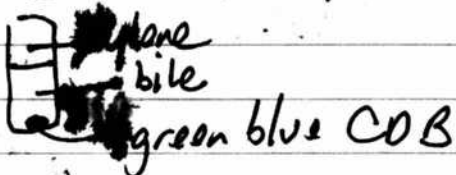 bile
green blue CDB